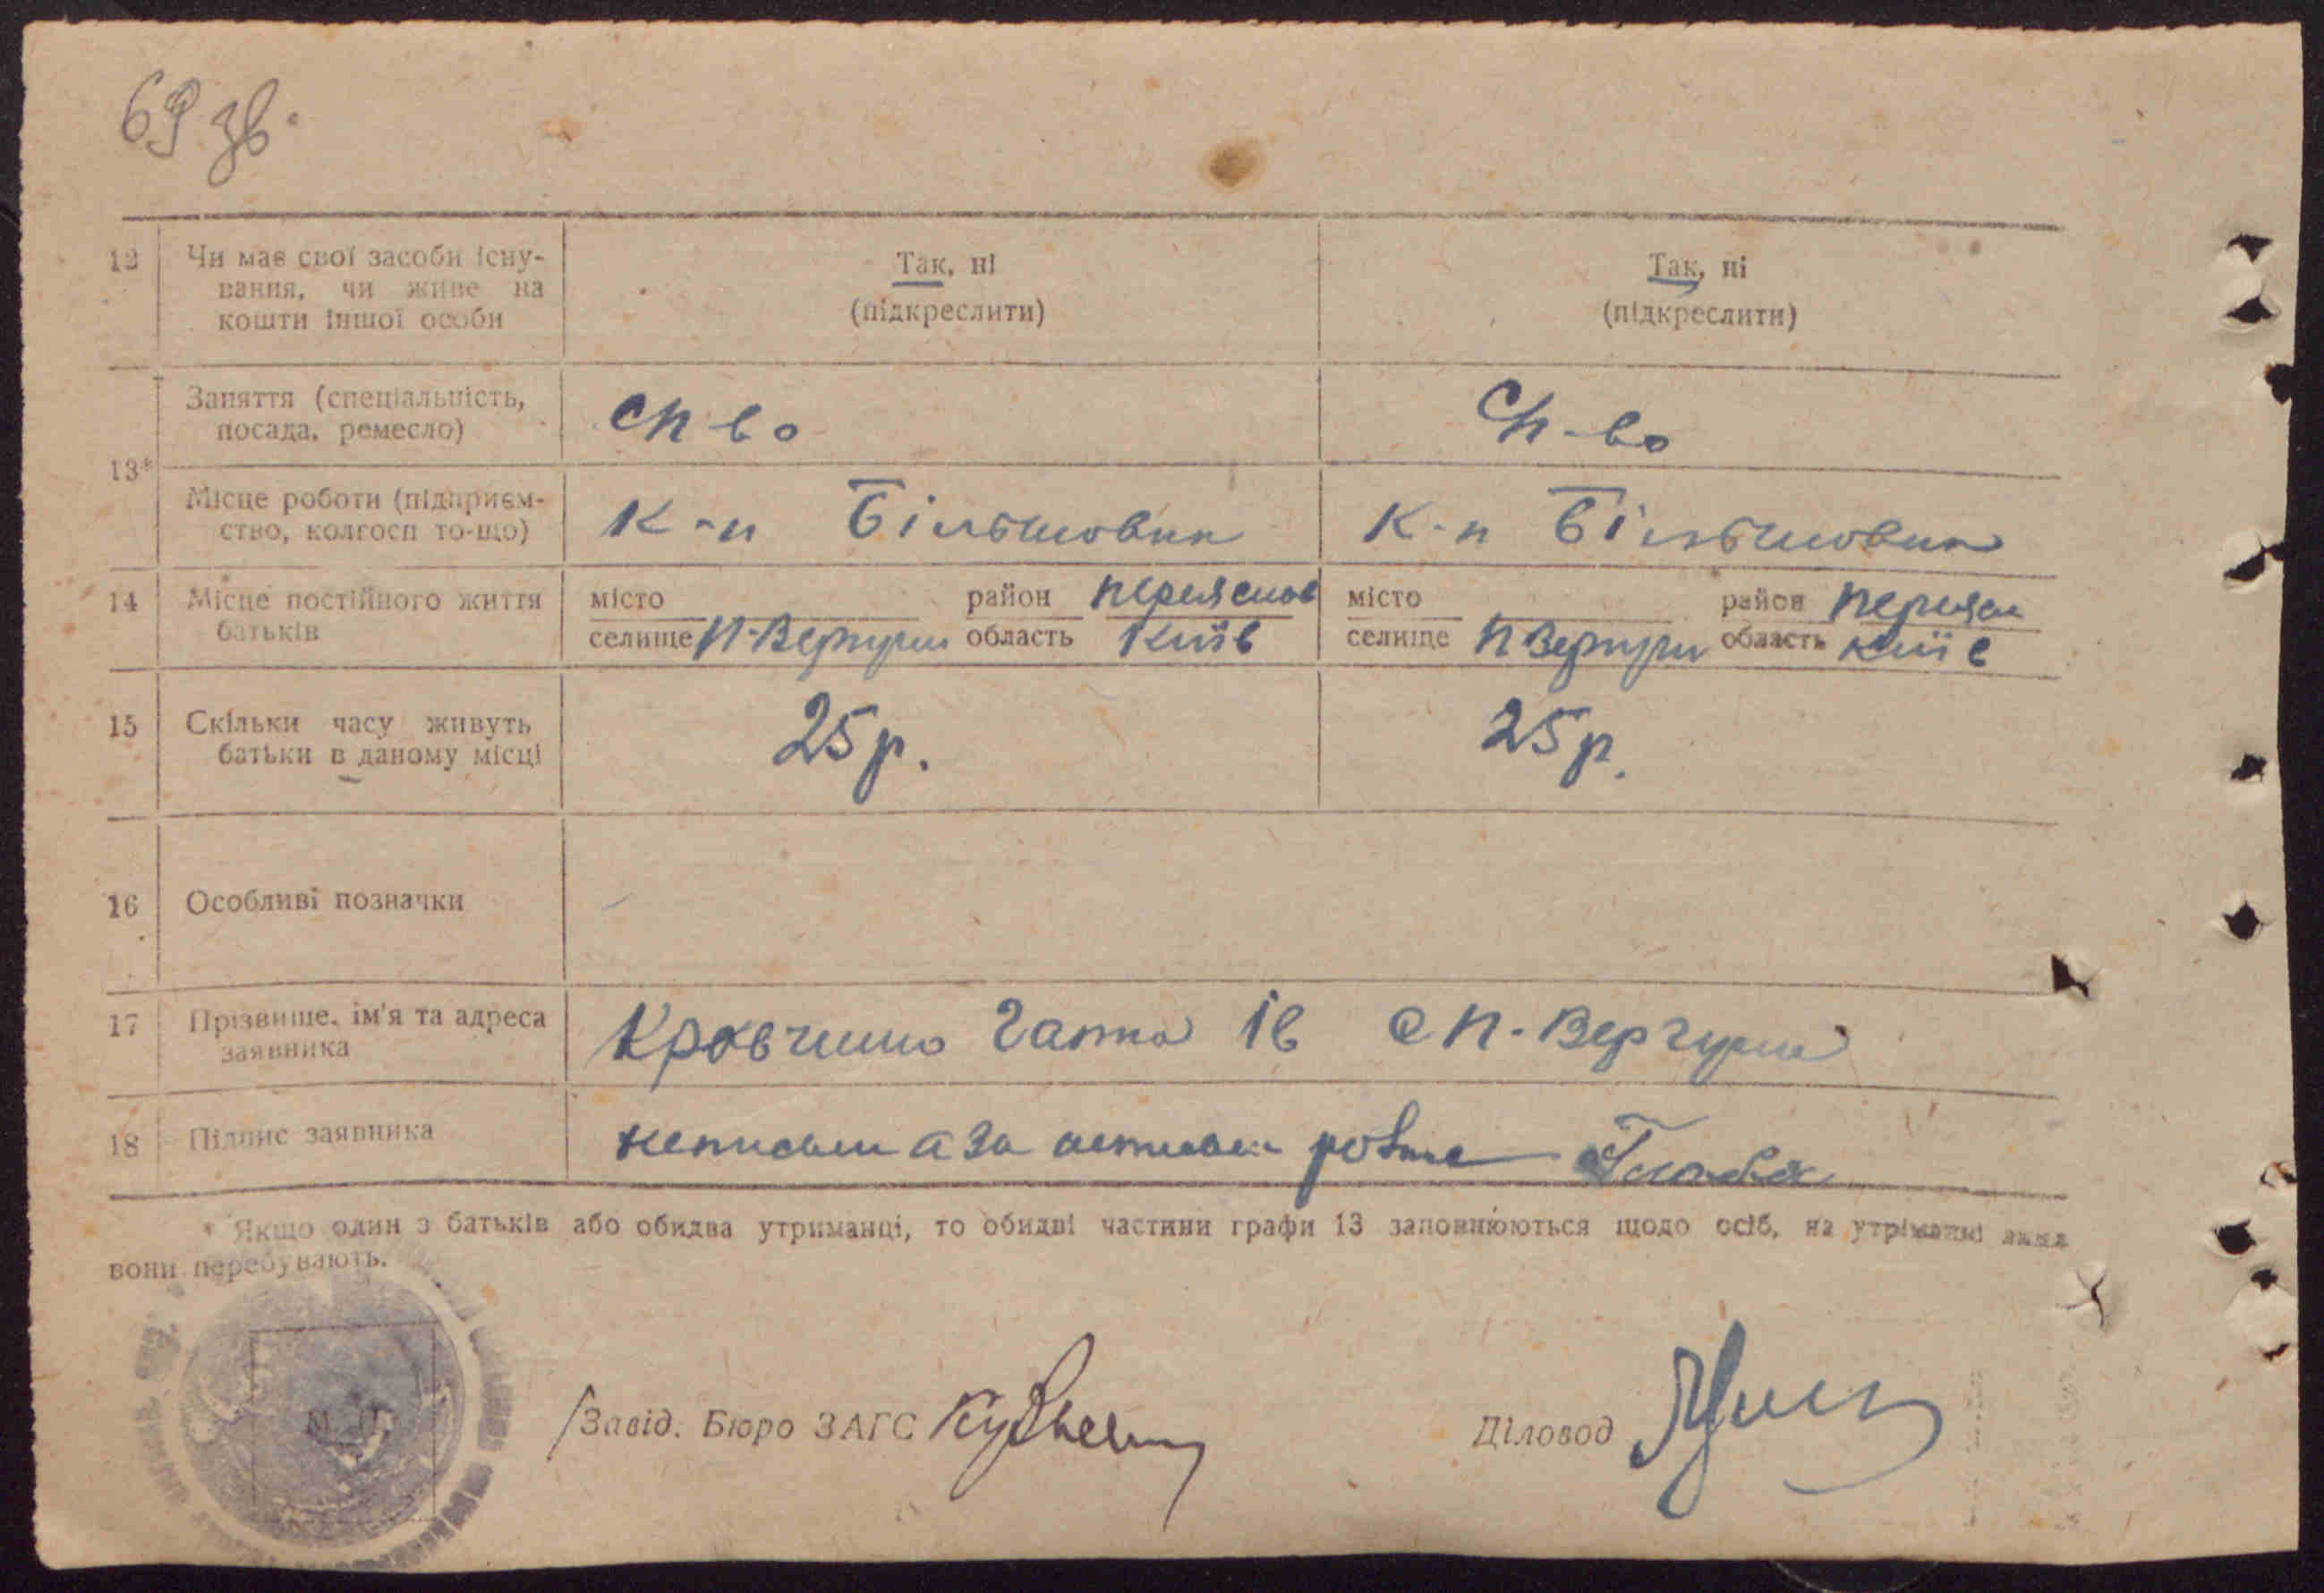 69 зв.
12 Чи має свої засоби існу-
вання, чи живе на
кошти іншої особи
Так, ні
(підкреслити)
Так, ні
(підкреслити)
13*
Заняття (спеціальність,
посада, ремесло)
сп во
Сп-во
Місце роботи (підприєм-
ство, колгосп то-що)
К-п Більшовик
К-п Більшовик
14 Місце постійного життя
батьків
місто район переяслов
селище П-Вергуни область Київ
місто район переясл
селище П Вергуни область Київ
15 Скільки часу живуть
батьки в даному місці
25 р.
25 р.
16 Особливі позначки
17 Прізвище, ім'я та адреса
заявника
Кравченко Ів с П-Вергуни
18 Підпис заявника
неписьм
* Якщо один з батьків або обидва утриманці, то обидві частини графи 13 заповнюються щодо осіб, на утриманні яких
вони перебувають.
М. П.
Завід. Бюро ЗАГС
Діловод